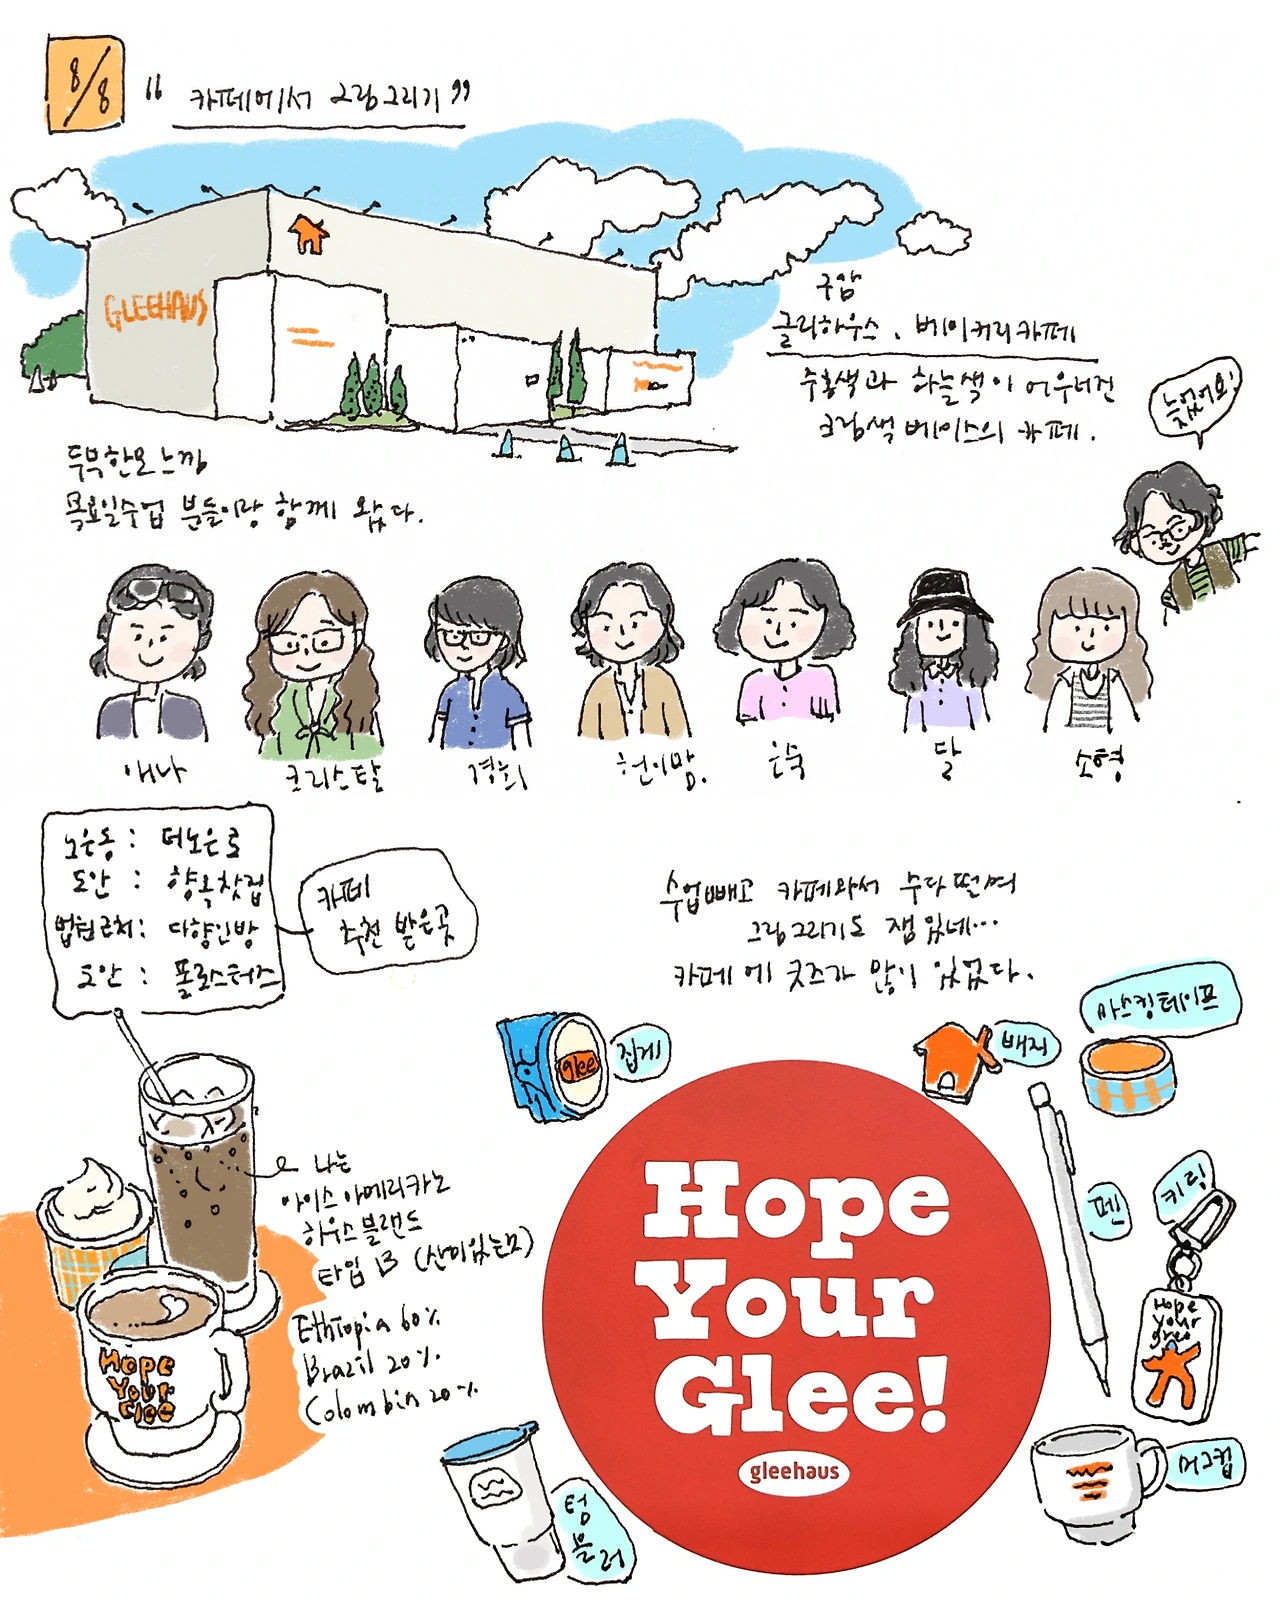 8/8
“ 카페에서 그림그리기 ”
GLEEHAUS
구암
글리하우스 . 베이커리카페
주홍색과 하늘색이 어우러진
크림색 베이스의 카페 .
늦었어요!
두부한모 느낌
목요일수업 분들이랑 함께 왔다.
애나
크리스탈
경희
현이맘.
은숙
달
소형
노은동 : 더노은로
도안 : 향옥찻집
법원근처 : 다향인방
도안 : 폴로스터즈
카페
추천 받은곳
수업빼고 카페와서 수다떨며
그림그리기도 잼있네...
카페에 굿즈가 많이 있었다.
glee
집게
배지
마스킹테이프
나는
아이스아메리카노
하우스블랜드
타입 B (산미있는맛)
Ethiopia 60%
Brazil 20%
Colombia 20%
Hope
Your
Glee
Hope
Your
Glee!
gleehaus
펜
키링
Hope
your
텀블러
머그컵